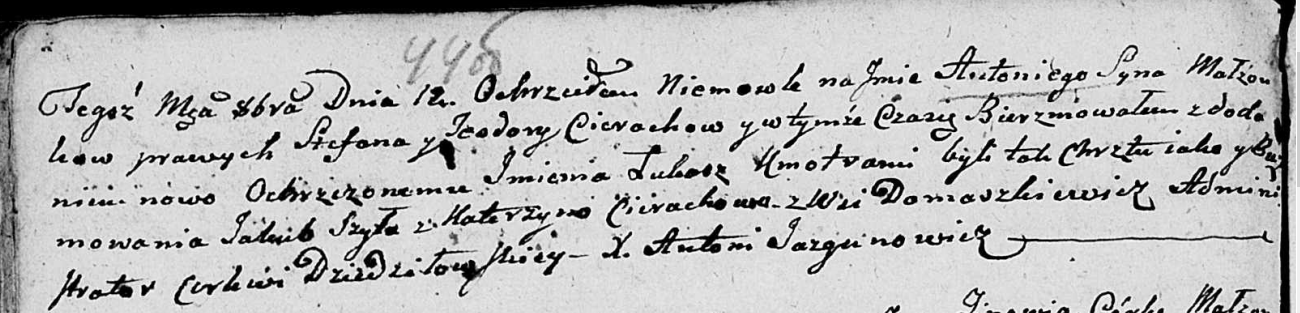 446
Tegoż Mca 8bra Dnia 12. Ochrzciłem Niemowle na Jmie Antoniego Syna Małżon
kow prawych Stefana y Teodory Cierachow y w tymże Czasię Bierzmowałem z doda
niem nowo Ochrzczonemu Jmienia Łukasz Kmotrami byli tak Chrztu iako y Bierz
mowania Jakub Szyła z Katerzyną Cierachowa z Wsi Domaszkiewicz Admini
strator Cerkwi Dziedziłowskiey - X. Antoni Jazgunowicz
Córkę Małżon